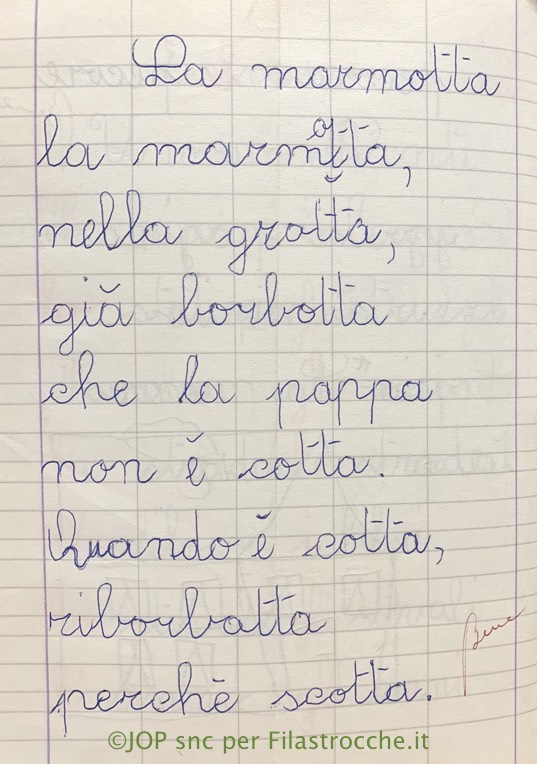 La marmotta
la marmotta,
nella grotta,
già borbotta
che la pappa
non è cotta.
Quando è cotta,
riborbatta
perchè scotta.
Bene
©JOP snc per Filastrocche.it